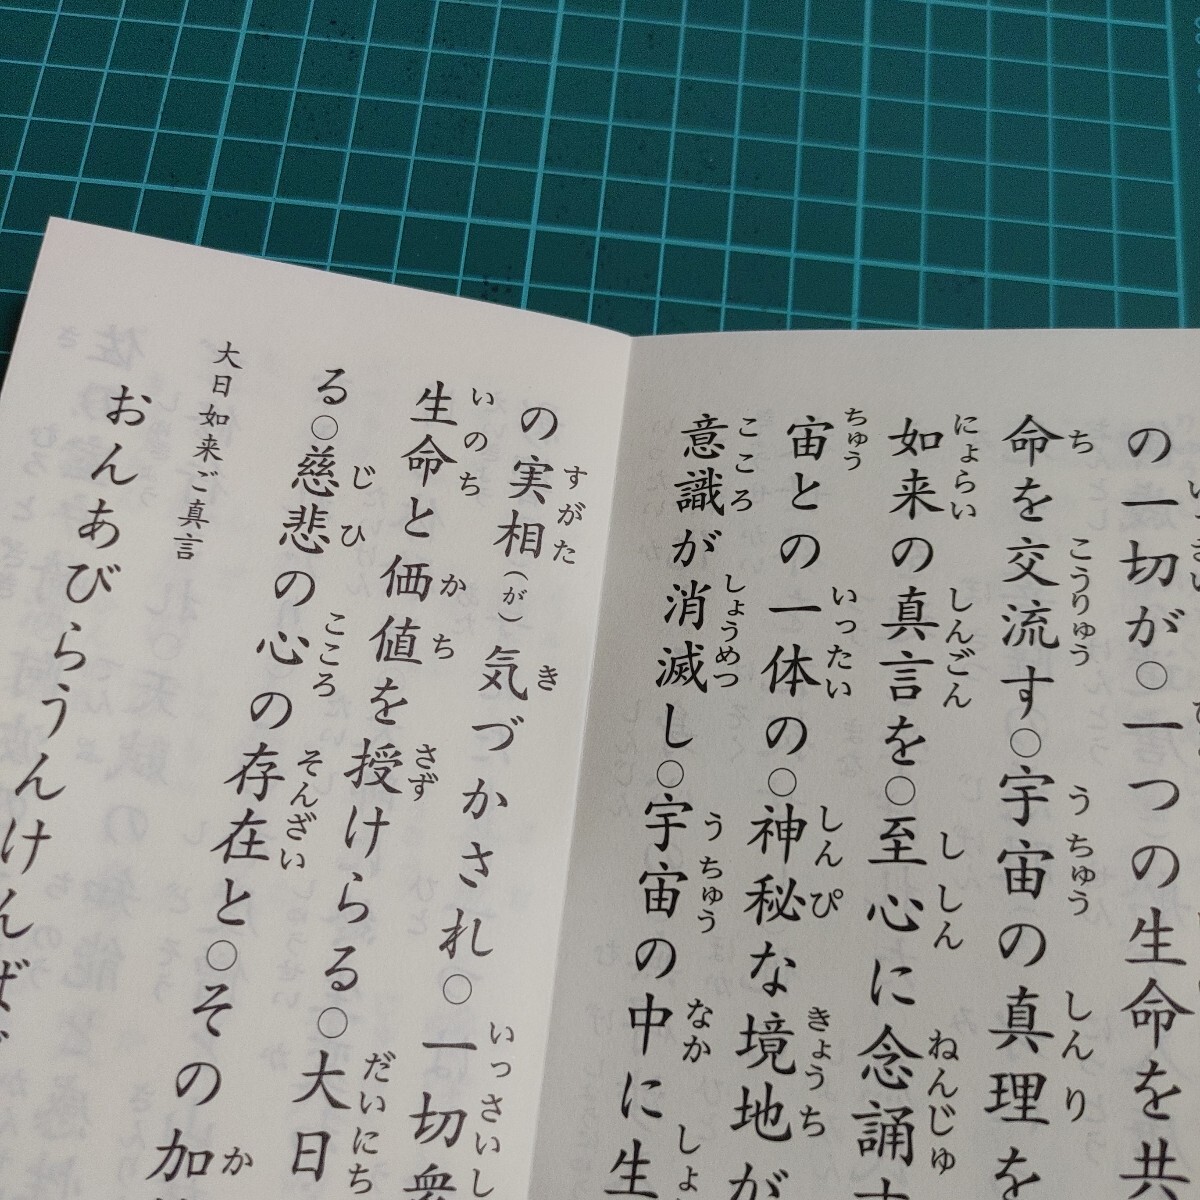 の一切が○一つの生命を共
命を交流す○宇宙の真理を
如来の真言を○至心に念誦す
宙との一体の○神秘な境地が
意識が消滅し○宇宙の中に生
の実相（が）気づかされ○一切衆
生命と価値を授けらる○大日
る○慈悲の心の存在と○その加
大日如来ご真言
おんあびらうんけんば